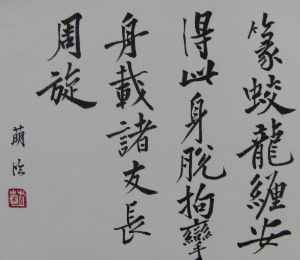 篆蛟龍纏安
得此身脫拘攣
身載諸友長
周旋
萌